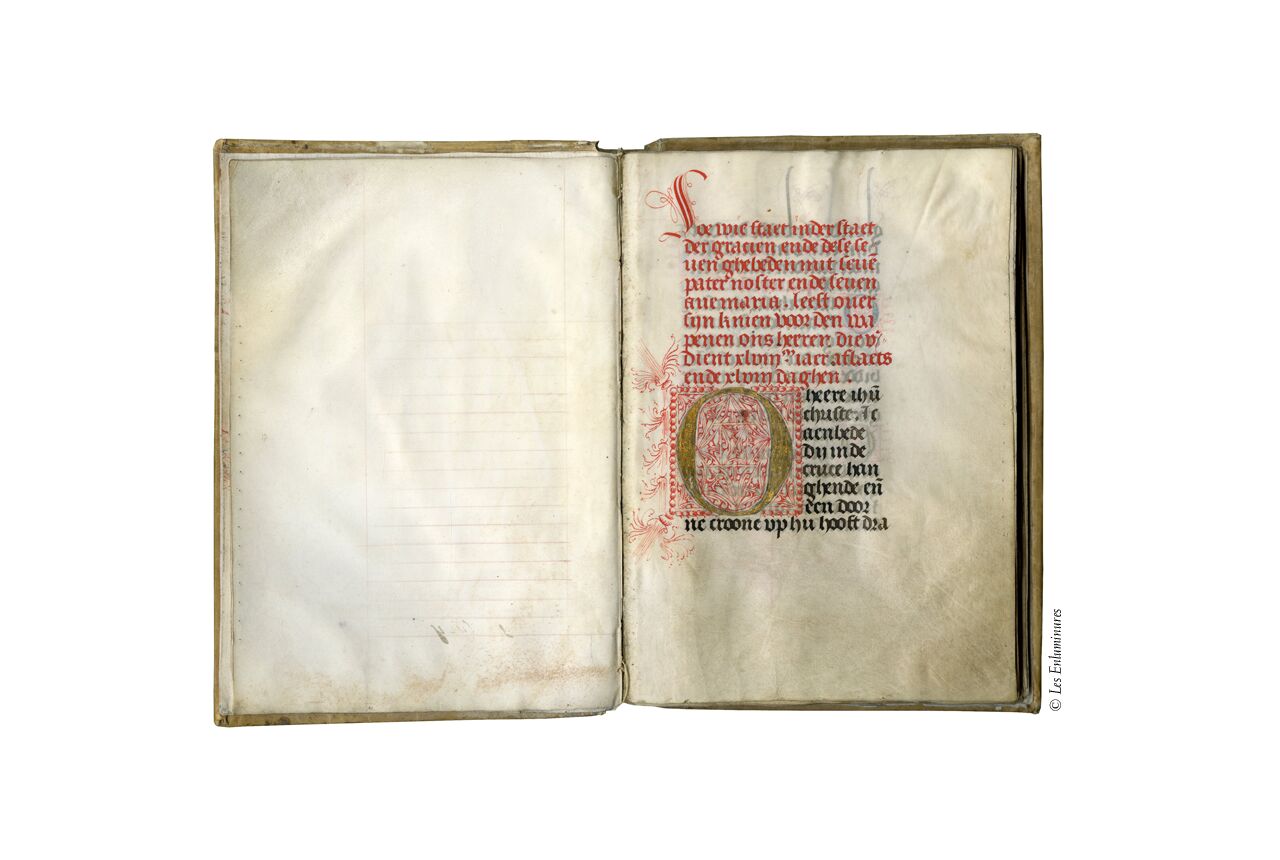 Soe wie staet in der staet
der gracien ende dese se
uen ghebeden mit seuē
pater noster ende seuen
aue maria. leest ouer
sijn knien voor den wa
penen ons herren die v͛
dient xlvi iaer aflaets
ende xlvi daghen.
O heere ihū
christe. Ic
aenbede
dij in de
cruce han
ghende eñ
een door
ne croone vp hu hooft dra
© Les Enluminures